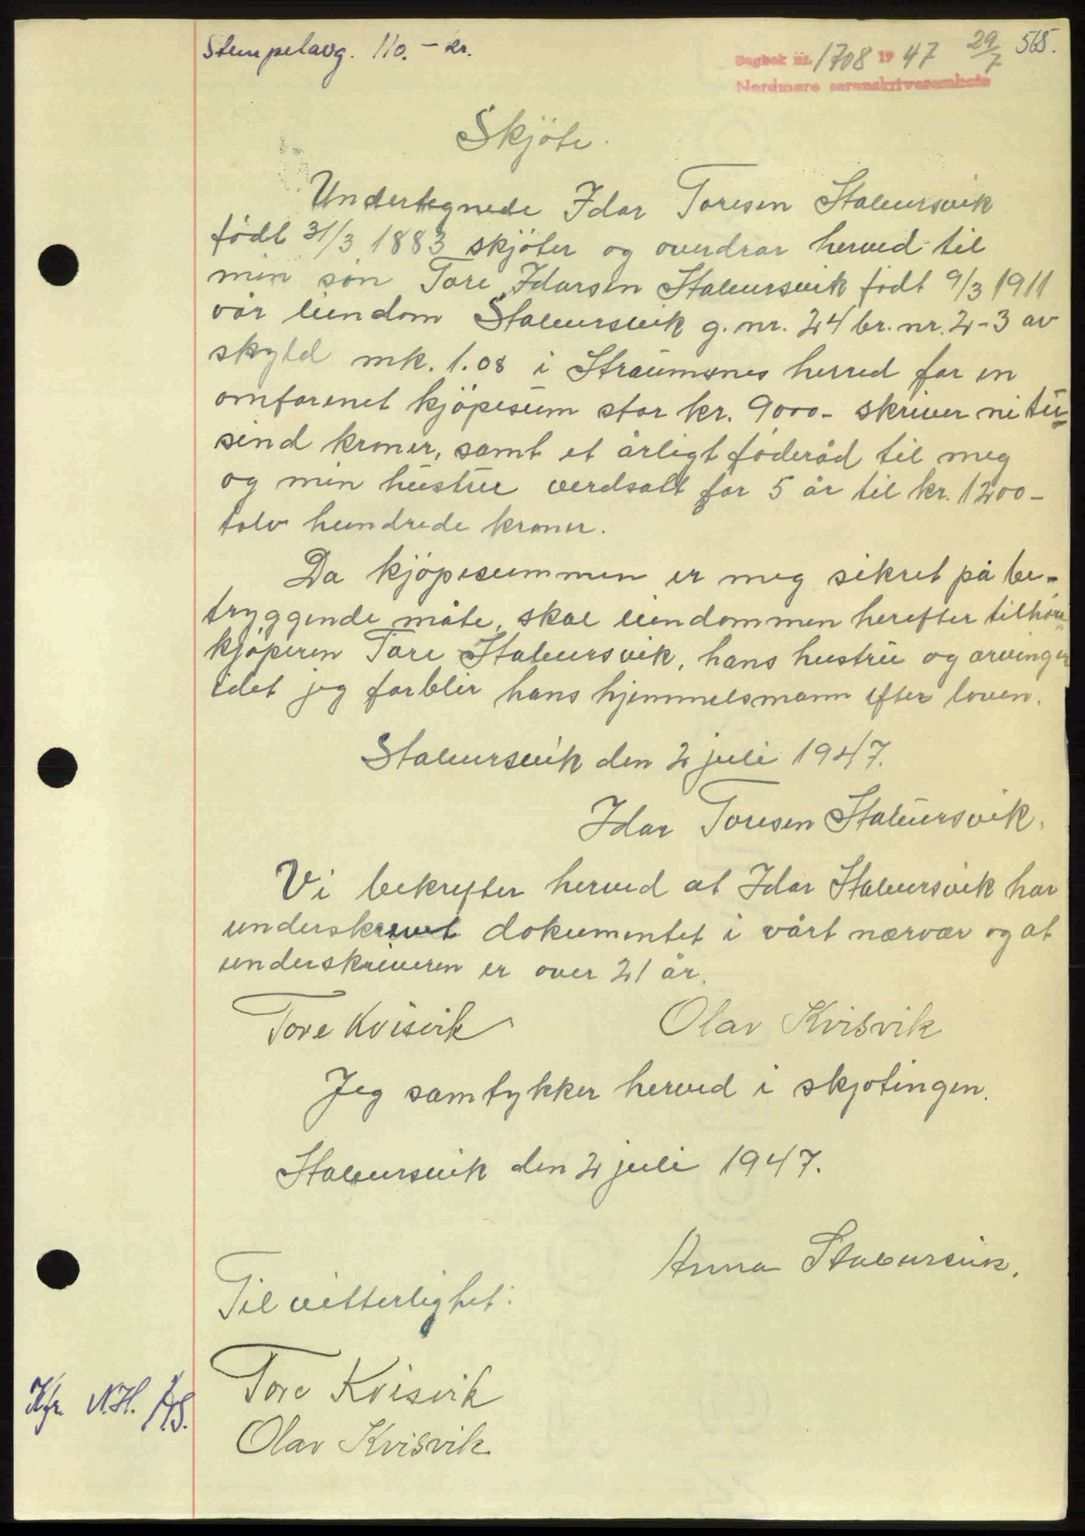 Stempelavg. 110.- kr.
Dagbok nr. 1708 19 47 29/7 565.
Nordmøre sorenskriverembete
Skjöte.
Undertegnede Idar Toresen Stabursvik
födt 31/3 1883 skjöter og overdrar herved til
min sön Tore Idarsen Stabursvik födt 9/3 1911
vår eiendom Stabursvik g. nr. 24 br. nr. 2-3 av
skyld mk. 1.08 i Straumsnes herred for en
omforenet kjöpesum stor kr. 9000- skriver ni tu-
sind kroner, samt et årligt föderåd til meg
og min hustru verdsatt for 5 år til kr. 1200-
tolv hundrede kroner.
Da kjöpesummen er meg sikret på be-
tryggende måte, skal eiendommen herefter tilhöre
kjöperen Tore Stabursvik, hans hustru og arvinger
idet jeg forblir hans hjemmelsmann efter loven.
Stabursvik den 2 juli 1947.
Idar Toresen Stabursvik.
Vi bekrefter herved at Idar Stabursvik har
underskrevet dokumentet i vårt nærvær og at
underskriveren er over 21 år.
Tore Kvisvik Olav Kvisvik
Jeg samtykker herved i skjøtingen.
Stabursvik den 2 juli 1947.
Anna Stabursvik.
Til vitterlighet:
Tore Kvisvik
Kfr. N.H. AS.
Olav Kvisvik